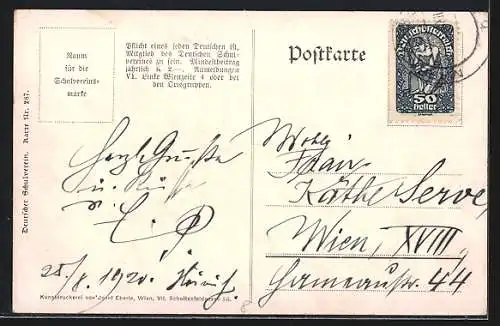 Raum
für die
Schulvereins-
marke
Pflicht eines jeden Deutschen ist,
Mitglied des Deutschen Schul-
vereines zu sein. Mindestbeitrag
jährlich K 2.—. Anmeldungen
VI. Linke Wienzeile 4 oder bei
den Ortsgruppen.
Postkarte
Deutschösterreich
50
Heller
Deutscher Schulverein. Karte Nr. 237.
Herzl. Grüße
u.
E. P
25/8. 1920.
Wohlg.
Frau
Käthe Serve,
Wien, XVIII
44
Kunstdruckerei von Josef Eberle, Wien, VII. Schottenfeldgasse